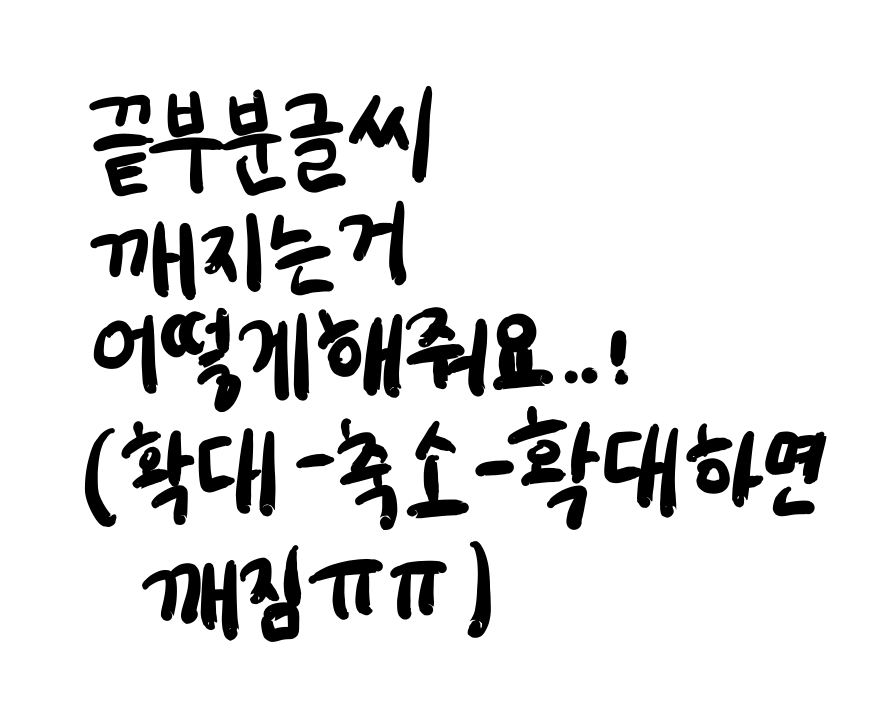 끝부분글씨
깨지는거
어떻게해줘요..!
(확대-축소-확대하면
깨짐ㅠㅠ)